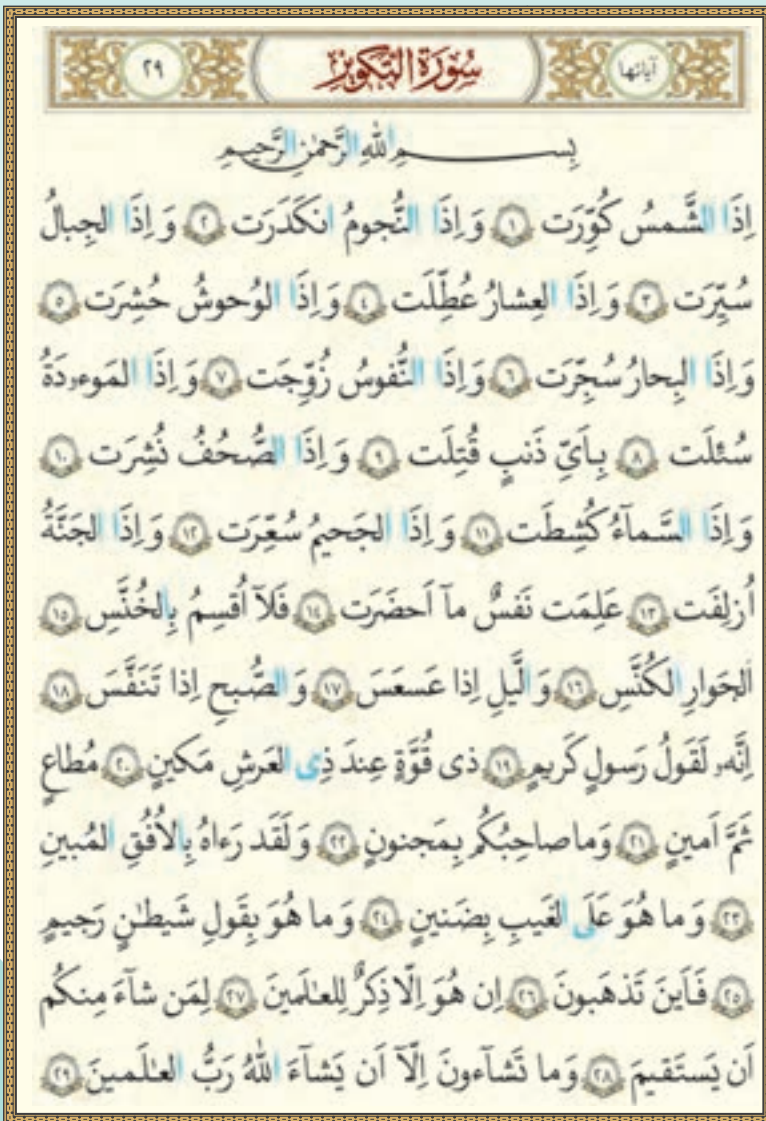 آیاتها سُورَةُ التَّكوير ٢٩
بِسمِ اللهِ الرَّحمٰنِ الرَّحيمِ
اِذَا الشَّمسُ كُوِّرَت ﴿١﴾ وَ اِذَا النُّجومُ انكَدَرَت ﴿٢﴾ وَ اِذَا الجِبالُ
سُيِّرَت ﴿٣﴾ وَ اِذَا العِشارُ عُطِّلَت ﴿٤﴾ وَ اِذَا الوُحوشُ حُشِرَت ﴿٥﴾
وَ اِذَا البِحارُ سُجِّرَت ﴿٦﴾ وَ اِذَا النُّفوسُ زُوِّجَت ﴿٧﴾ وَ اِذَا المَوءۥدَةُ
سُئلَت ﴿٨﴾ بِاَیِّ ذَنبٍ قُتِلَت ﴿٩﴾ وَ اِذَا الصُّحُفُ نُشِرَت ﴿١٠﴾
وَ اِذَا السَّمآءُ كُشِطَت ﴿١١﴾ وَ اِذَا الجَحيمُ سُعِّرَت ﴿١٢﴾ وَ اِذَا الجَنَّةُ
اُزلِفَت ﴿١٣﴾ عَلِمَت نَفسٌ مآ اَحضَرَت ﴿١٤﴾ فَلآ اُقسِمُ بِالخُنَّسِ ﴿١٥﴾
اَلجَوارِ الكُنَّسِ ﴿١٦﴾ وَ الَّيلِ اِذا عَسعَسَ ﴿١٧﴾ وَ الصُّبحِ اِذا تَنَفَّسَ ﴿١٨﴾
اِنَّهۥ لَقَولُ رَسولٍ كَريمٍ ﴿١٩﴾ ذی قُوَّةٍ عِندَ ذِی العَرشِ مَكينٍ ﴿٢٠﴾ مُطاعٍ
ثَمَّ اَمينٍ ﴿٢١﴾ وَ ما صاحِبُكُم بِمَجنونٍ ﴿٢٢﴾ وَ لَقَد رَءاهُ بِالاُفُقِ المُبينِ
﴿٢٣﴾ وَ ما هُوَ عَلَی الغَيبِ بِضَنينٍ ﴿٢٤﴾ وَ ما هُوَ بِقَولِ شَيطٰنٍ رَجيمٍ
﴿٢٥﴾ فَاَينَ تَذهَبونَ ﴿٢٦﴾ اِن هُوَ اِلّا ذِكرٌ لِلعٰلَمينَ ﴿٢٧﴾ لِمَن شآءَ مِنكُم
اَن يَستَقيمَ ﴿٢٨﴾ وَ ما تَشآءونَ اِلّآ اَن يَشآءَ اللهُ رَبُّ العٰلَمينَ ﴿٢٩﴾